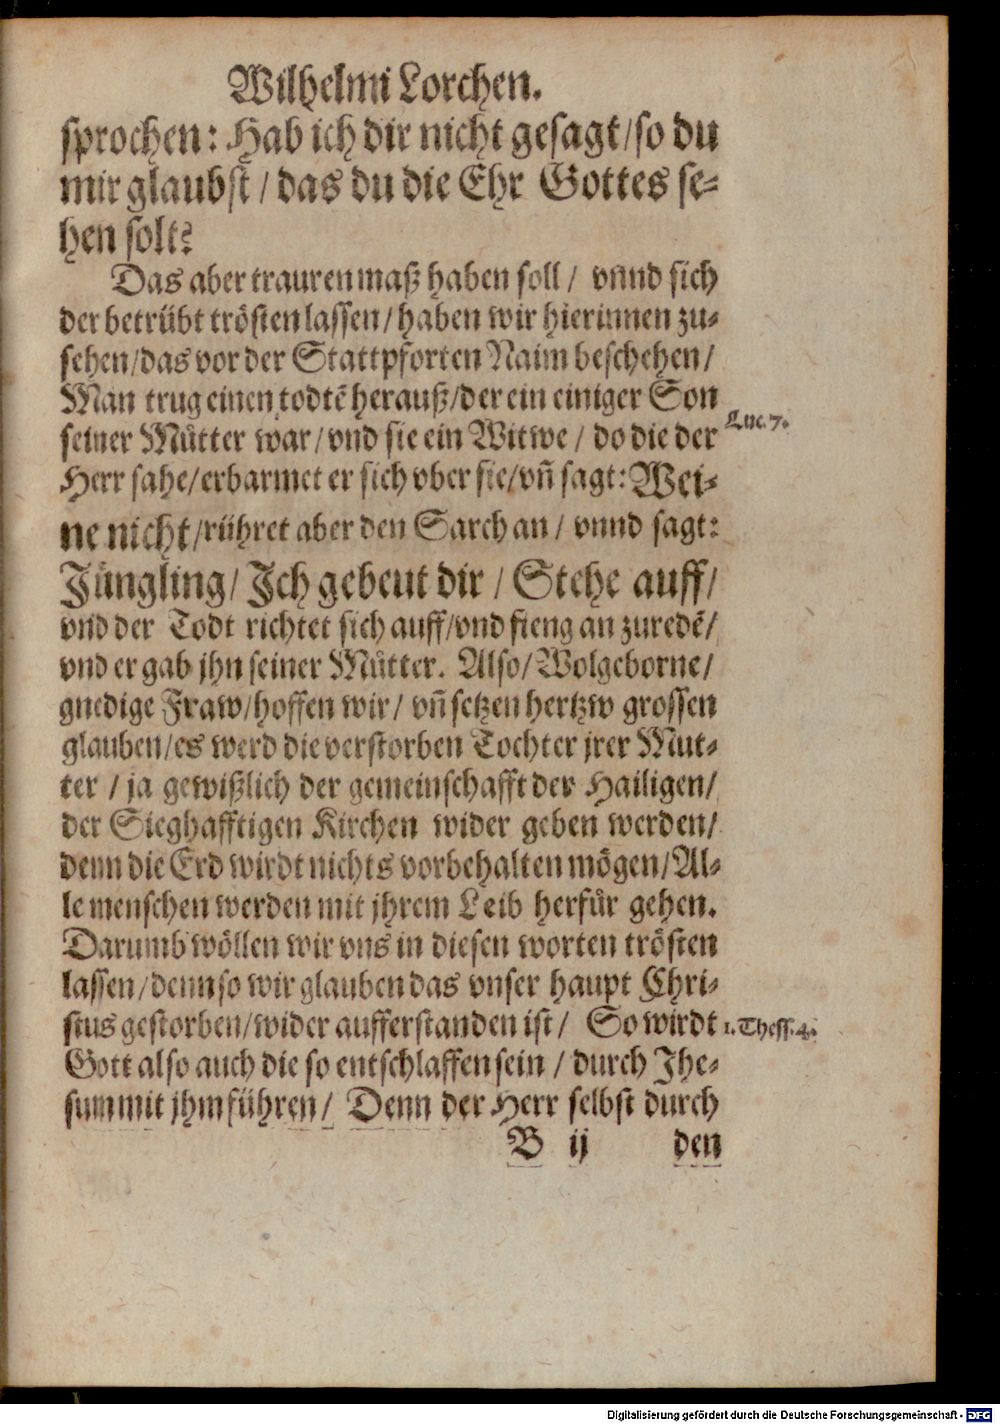 Wilhelmi Lorchen.
sprochen: Hab ich dir nicht gesagt/so du
mir glaubst / das du die Ehr Gottes se-
hen solt?
Das aber trauren maß haben soll / vnnd sich
der betrübt trösten lassen/haben wir hierinnen zu-
sehen/das vor der Stattpforten Naim beschehen/
Man trug einen todtē herauß/der ein einiger Son
seiner Mütter war/vnd sie ein Witwe / do die der
Luc. 7.
Herr sahe/erbarmet er sich vber sie/vñ sagt: Wei-
ne nicht/rühret aber den Sarch an / vnnd sagt:
Jüngling/ Ich gebeut dir / Stehe auff/
vnd der Todt richtet sich auff/vnd fieng an zuredē/
vnd er gab jhn seiner Mütter. Also/Wolgeborne/
gnedige Fraw/hoffen wir/ vñ setzen hertzw grossen
glauben/es werd die verstorben Tochter jrer Mut-
ter / ja gewißlich der gemeinschafft der Hailigen/
der Sieghafftigen Kirchen wider geben werden/
denn die Erd wirdt nichts vorbehalten mögen/Al-
le menschen werden mit jhrem Leib herfür gehen.
Darumb wöllen wir vns in diesen worten trösten
lassen/denn so wir glauben das vnser haupt Chri-
stus gestorben/wider aufferstanden ist/ So wirdt
1. Thess. 4.
Gott also auch die so entschlaffen sein / durch Jhe-
sum mit jhm führen/ Denn der Herr selbst durch
B ij den
Digitalisierung gefördert durch die Deutsche Forschungsgemeinschaft - DFG